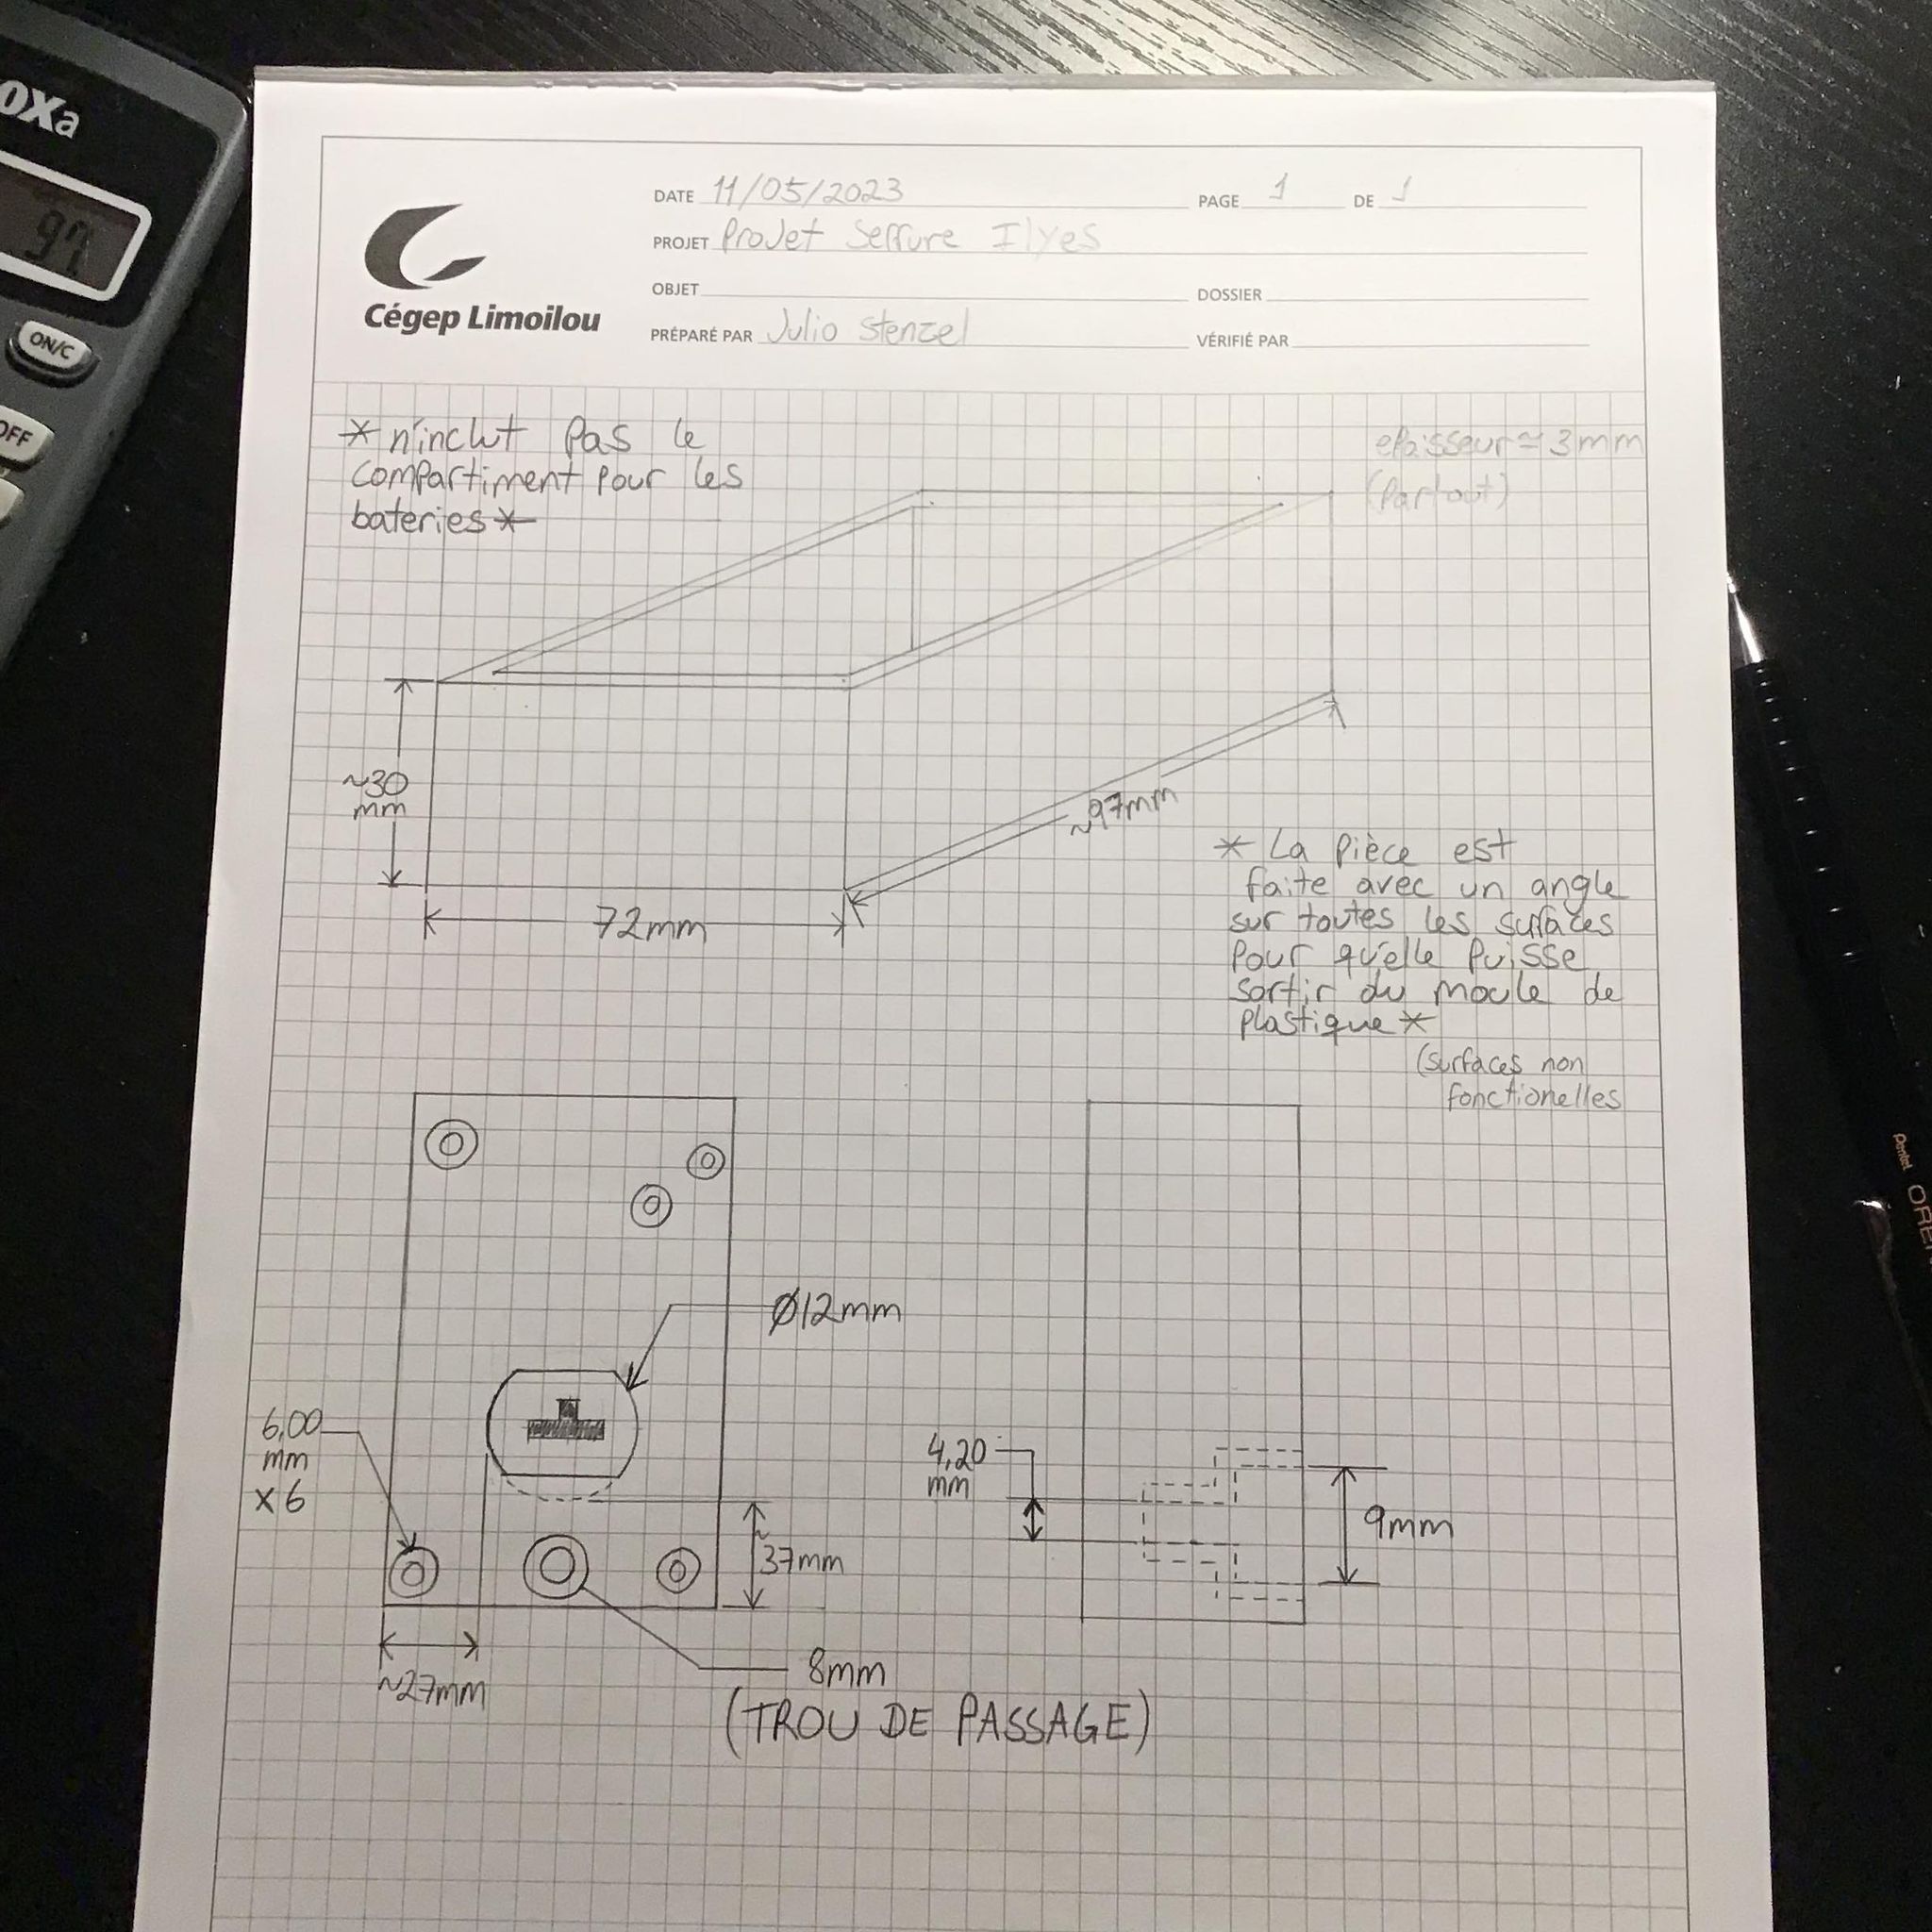 oxa
97
ON/C
OFF
Cégep Limoilou
DATE 11/05/2023
PAGE 1 DE 1
PROJET ProJet Serrure Ilyes
OBJET
DOSSIER
PRÉPARÉ PAR Julio Stenzel
VÉRIFIÉ PAR
* n'inclut Pas le
compartiment pour les
bateries *
epaisseur ≃ 3mm
(Partout)
~30
mm
72mm
~97mm
* La pièce est
faite avec un angle
sur toutes les surfaces
pour qu'elle puisse
sortir du moule de
plastique *
(surfaces non
fonctionelles
Ø12mm
6,00
mm
x6
~
37mm
~27mm
8mm
(TROU DE PASSAGE)
4,20
mm
9mm
Pentel